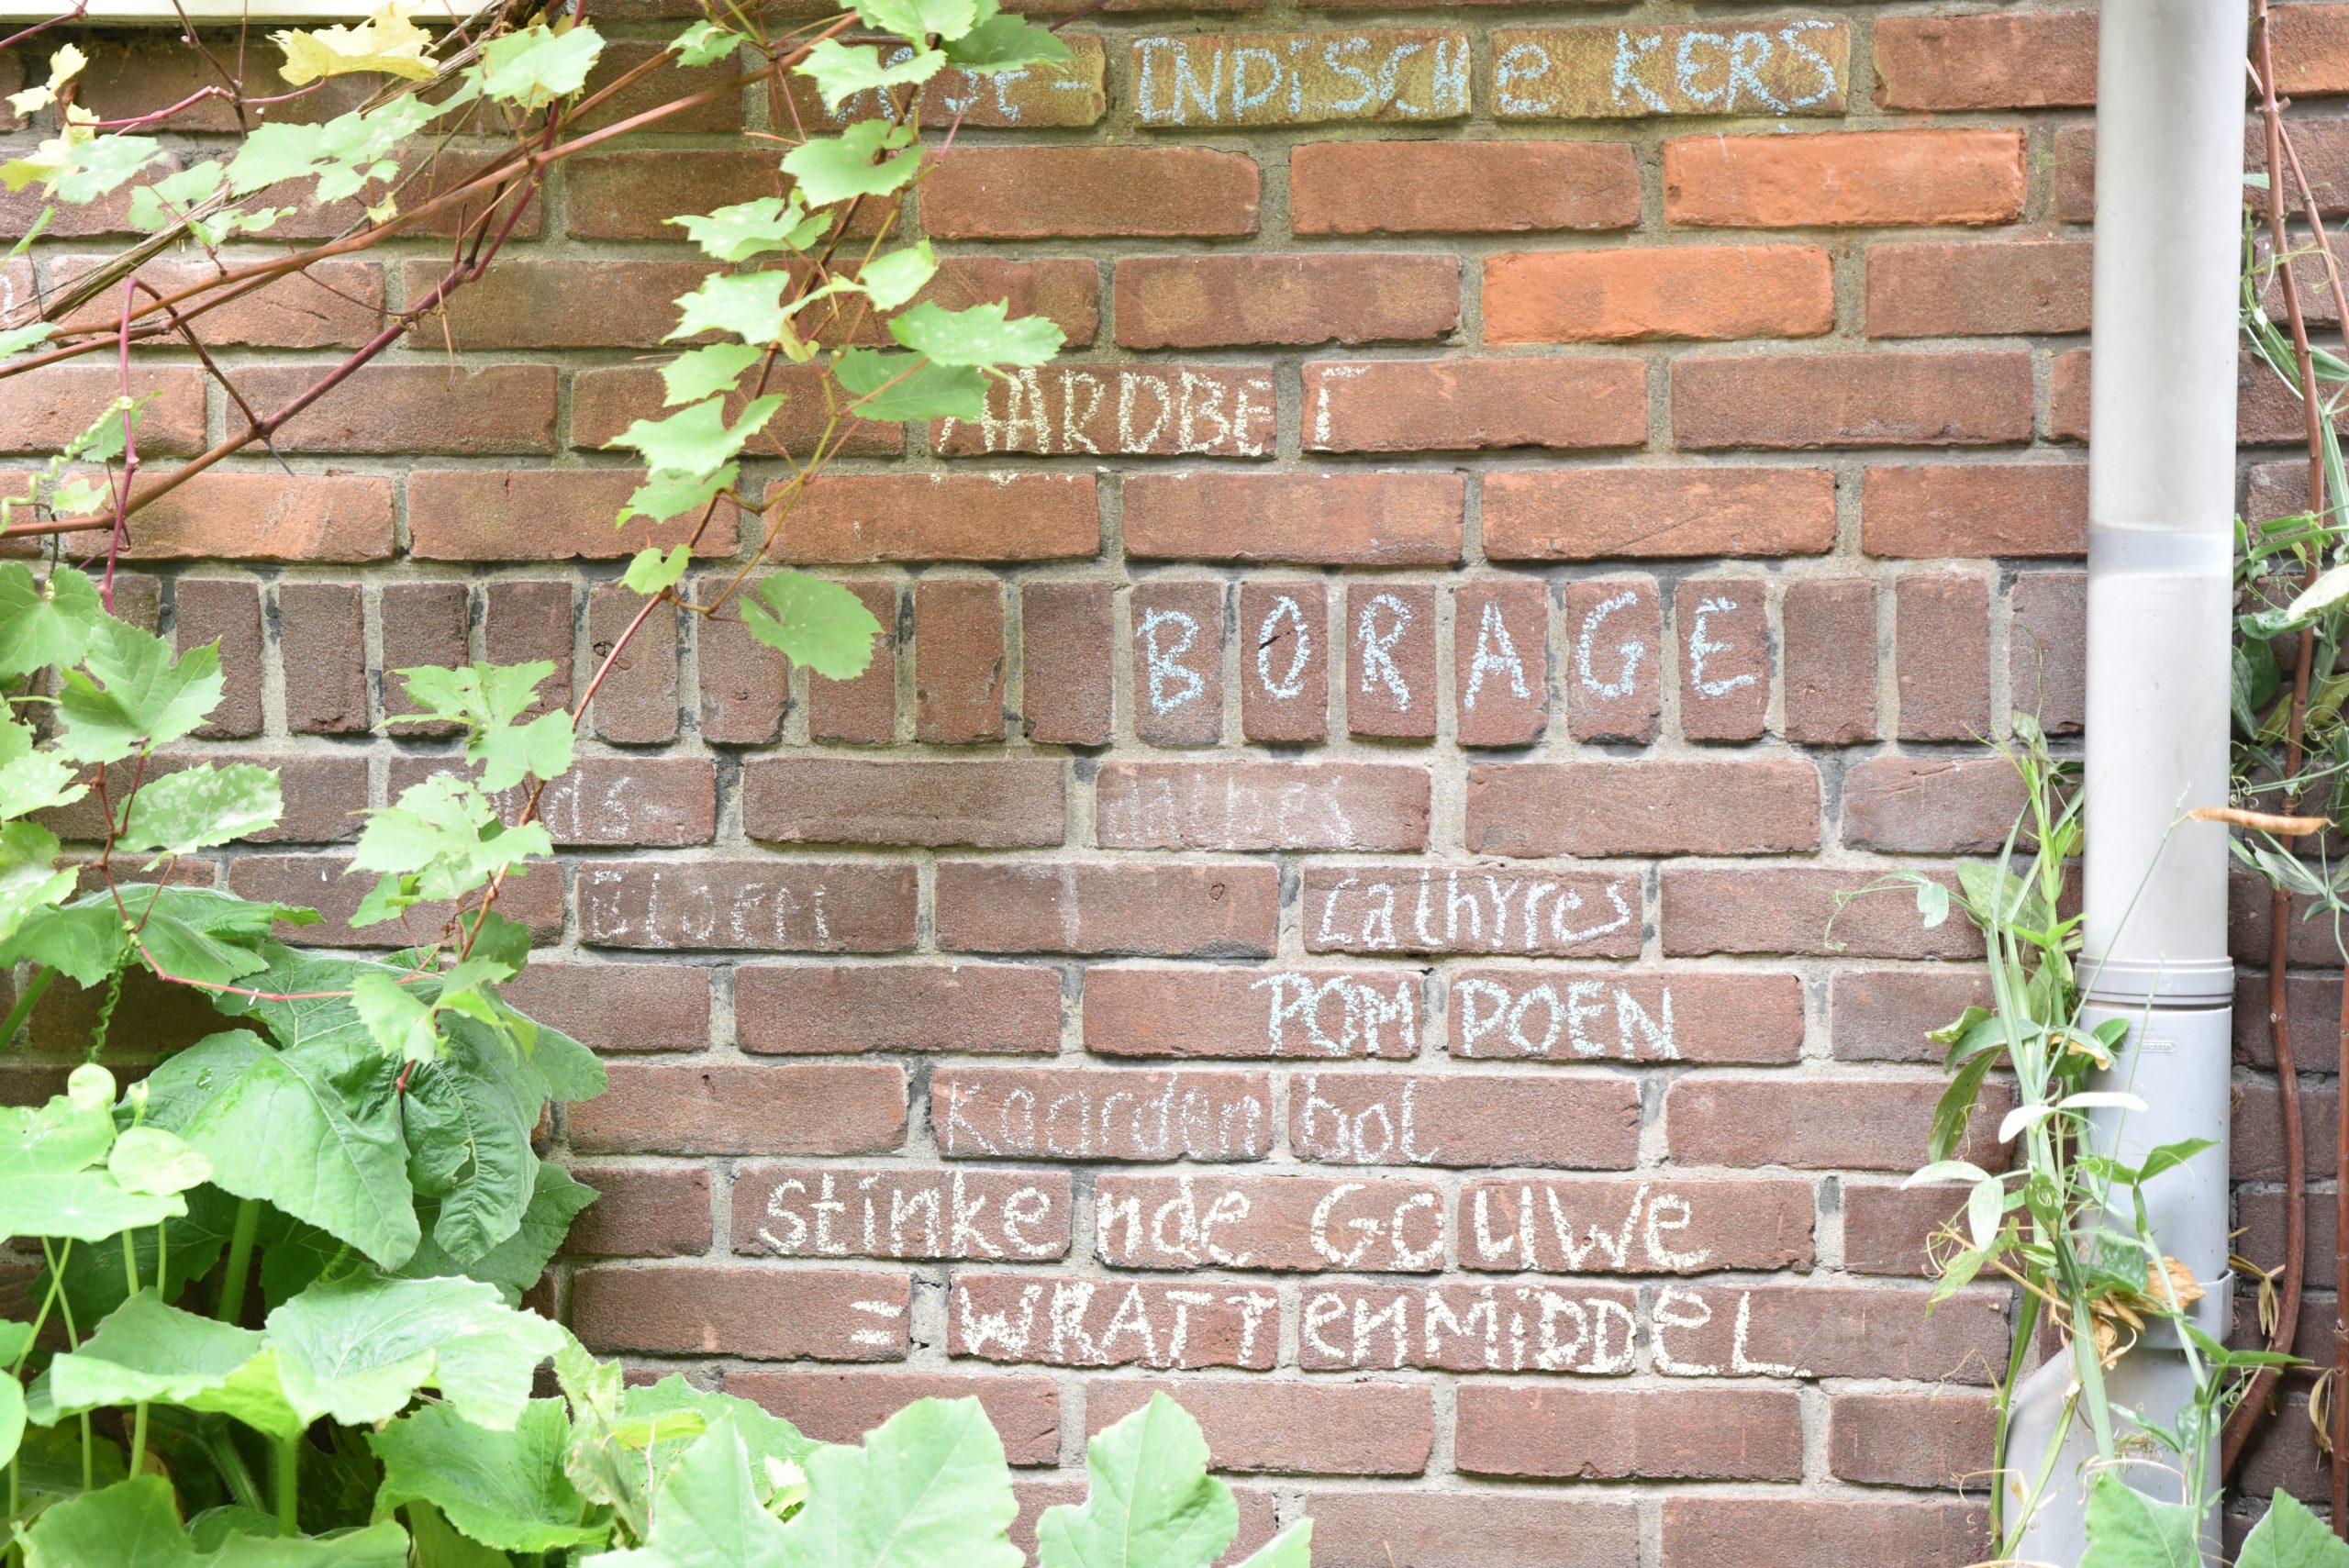 - INDISCHE KERS
AARDBET
BORAGE
BLOEM
Lathyres
POMPOEN
Kaardenbol
stinkende Gouwe
= WRATTENMIDDEL